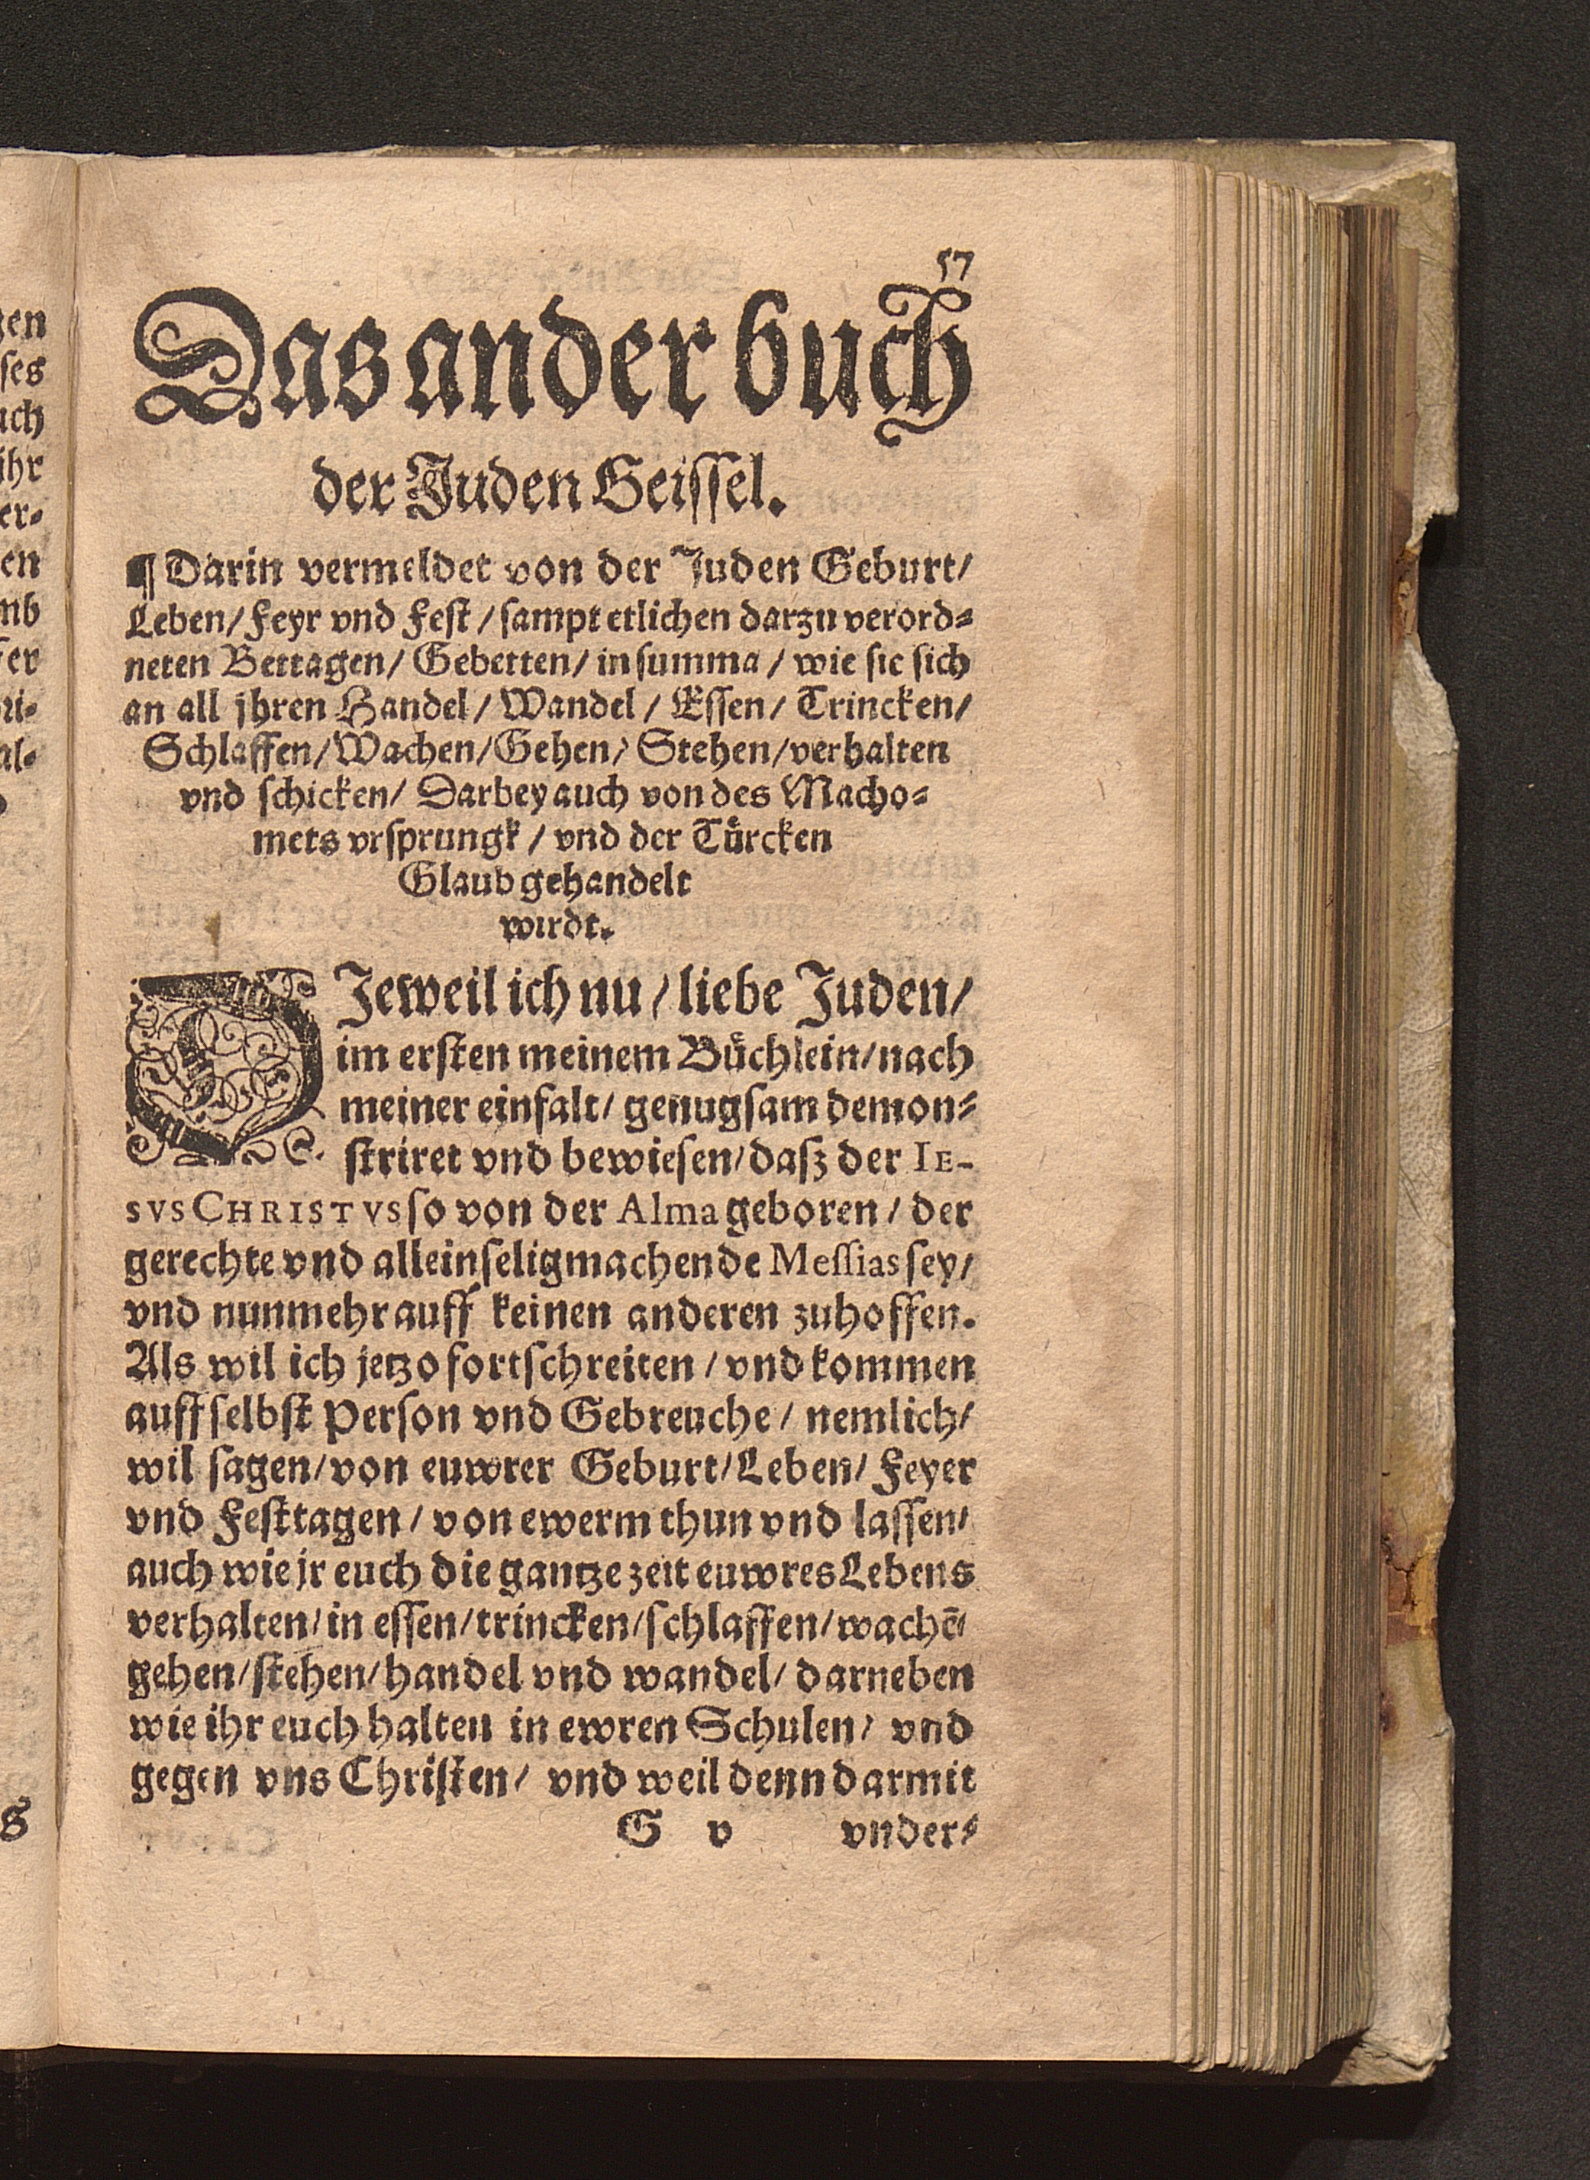 57
Das ander buch
der Juden Geissel.
¶ Darin vermeldet von der Juden Geburt/
Leben/ Feyr vnd Fest / sampt etlichen darzu verord⸗
neten Bettagen/ Gebetten/ in summa / wie sie sich
an all jhren Handel/ Wandel / Essen/ Trincken/
Schlaffen/ Wachen/ Gehen/ Stehen/ verhalten
vnd schicken/ Darbey auch von des Macho⸗
mets vrsprungk / vnd der Tuͤrcken
Glaub gehandelt
wirdt.
DJeweil ich nu / liebe Juden/
im ersten meinem Buͤchlein/ nach
meiner einfalt/ genugsam demon⸗
striret vnd bewiesen/ dasz der IE-
SVS CHRISTVS so von der Alma geboren / der
gerechte vnd alleinseligmachende Messias sey/
vnd nunmehr auff keinen anderen zuhoffen.
Als wil ich jetzo fortschreiten / vnd kommen
auff selbst Person vnd Gebreuche / nemlich/
wil sagen/ von euwrer Geburt/ Leben/ Feyer
vnd Festtagen / von ewerm thun vnd lassen/
auch wie jr euch die gantze zeit euwres Lebens
verhalten/ in essen/ trincken/ schlaffen/ wachē/
gehen/ stehen/ handel vnd wandel/ darneben
wie ihr euch halten in ewren Schulen/ vnd
gegen vns Christen/ vnd weil denn darmit
G v vnder⸗
gen
ses
uch
ihr
er⸗
en
mb
al⸗
s